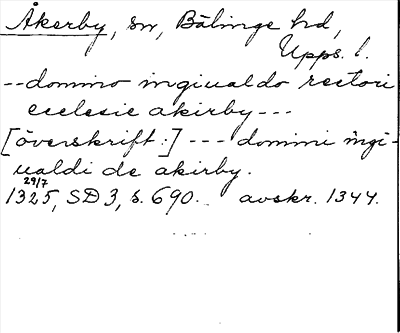 Åkerby, sn, Bälinge hd,
Upps. l.
-- domino ingiualdo rectori
ecclesie akirby ---
[överskrift:] --- domini ingi-
ualdi de akirby.
29/7
1325, SD 3, s. 690. avskr. 1344.